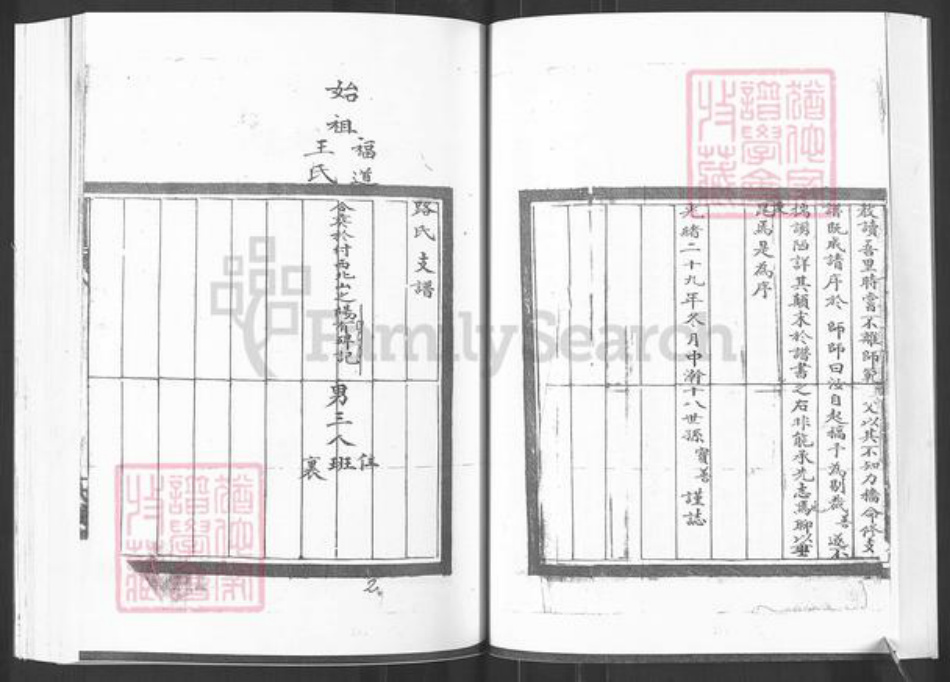 教讀吾里時嘗不離師範 父以其不知力橋命修支
譜既成請序於 師師曰汝自起稿予為刪裁善遂不
揣謭陋詳其顛末於譜書之右非能承先志焉聊以垂
昆焉是為序
光緒二十九年冬月中澣十八世孫寶善謹誌
路氏支譜
始祖 福道
王氏
合葬於村西北山之陽有碑記
男三人
仕
班
襄
2
FamilySearch